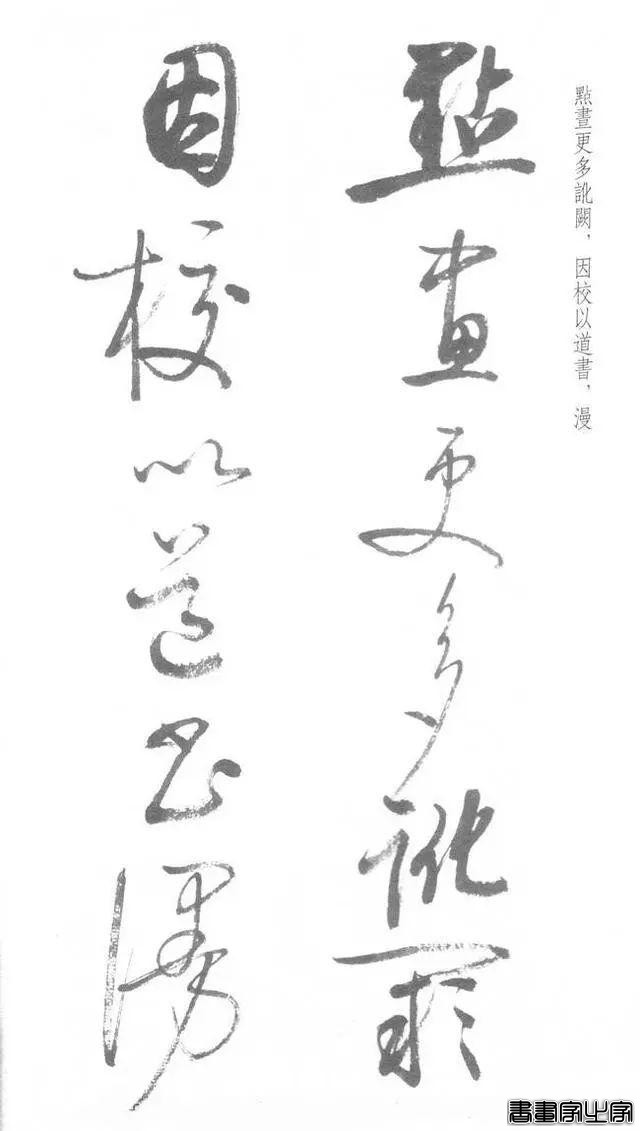 點畫更多訛闕，因校以道書，漫
點畫更多訛闕
因校以道書漫
書畫家之家